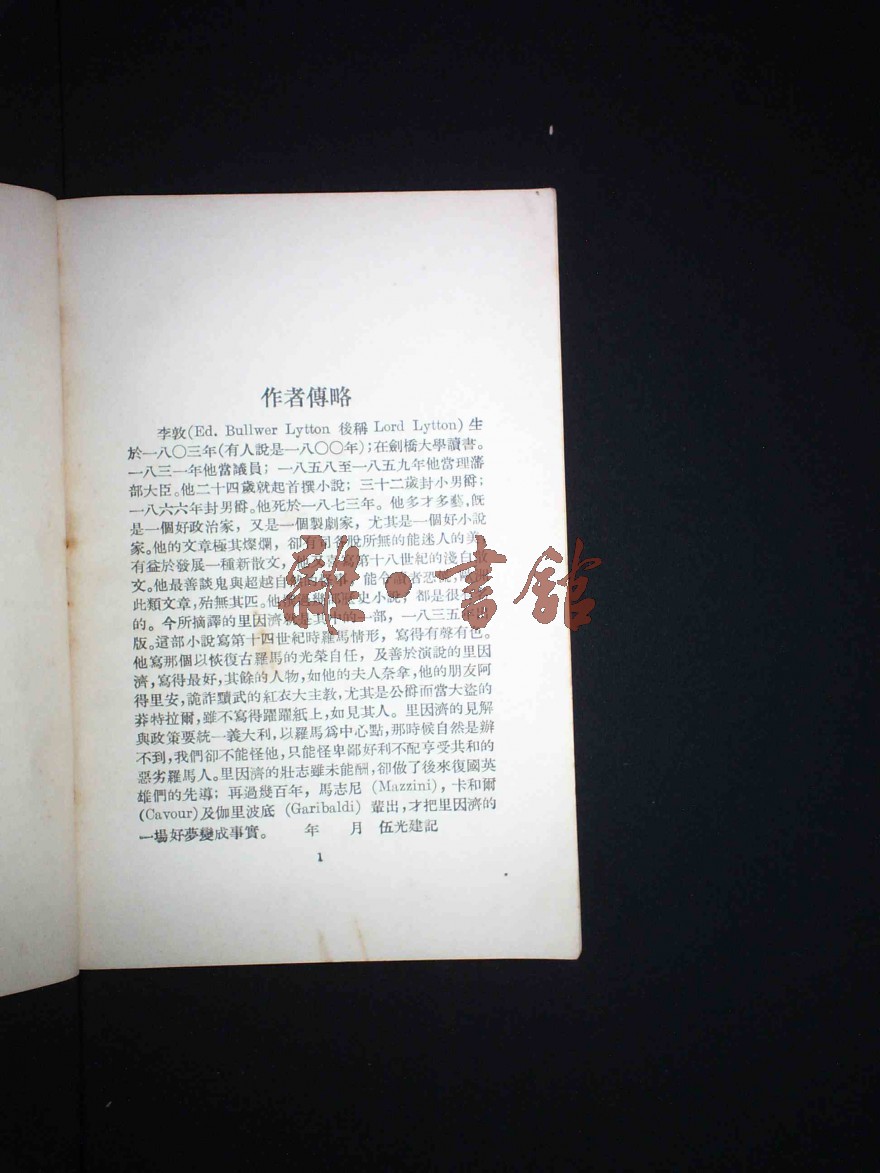 作者傳略
李敦(Ed. Bullwer Lytton 後稱 Lord Lytton) 生
於一八〇三年(有人說是一八〇〇年);在劍橋大學讀書。
一八三一年他當議員; 一八五八至一八五九年他當理藩
部大臣。他二十四歲就起首撰小說; 三十二歲封小男爵;
一八六六年封男爵。他死於一八七三年。 他多才多藝,旣
是一個好政治家, 又是一個製劇家, 尤其是一個好小說
家。他的文章極其燦爛, 卻有司各脫所無的能迷人的美,
有益於發展一種新散文, 他又善寫第十八世紀的淺白散
文。他最善談鬼與超越自然的 能令讀者恐
此類文章, 殆無其匹。他 歷史小說, 都是很
的。今所摘譯的里因濟就是其中的一部, 一八三五年出
版。這部小說寫第十四世紀時羅馬情形, 寫得有聲有色。
他寫那個以恢復古羅馬的光榮自任, 及善於演說的里因
濟, 寫得最好, 其餘的人物, 如他的夫人奈拿, 他的朋友阿
得里安, 詭詐黷武的紅衣大主教, 尤其是公爵而當大盜的
莽特拉爾, 雖不寫得躍躍紙上, 如見其人。里因濟的見解
與政策要統一義大利, 以羅馬爲中心點, 那時候自然是辦
不到, 我們卻不能怪他, 只能怪卑鄙好利不配享受共和的
惡劣羅馬人。里因濟的壯志雖未能酬, 卻做了後來復國英
雄們的先導; 再過幾百年, 馬志尼 (Mazzini), 卡和爾
(Cavour) 及伽里波底 (Garibaldi) 輩出, 才把里因濟的
一場好夢變成事實。 年 月 伍光建記
1
雜·書館